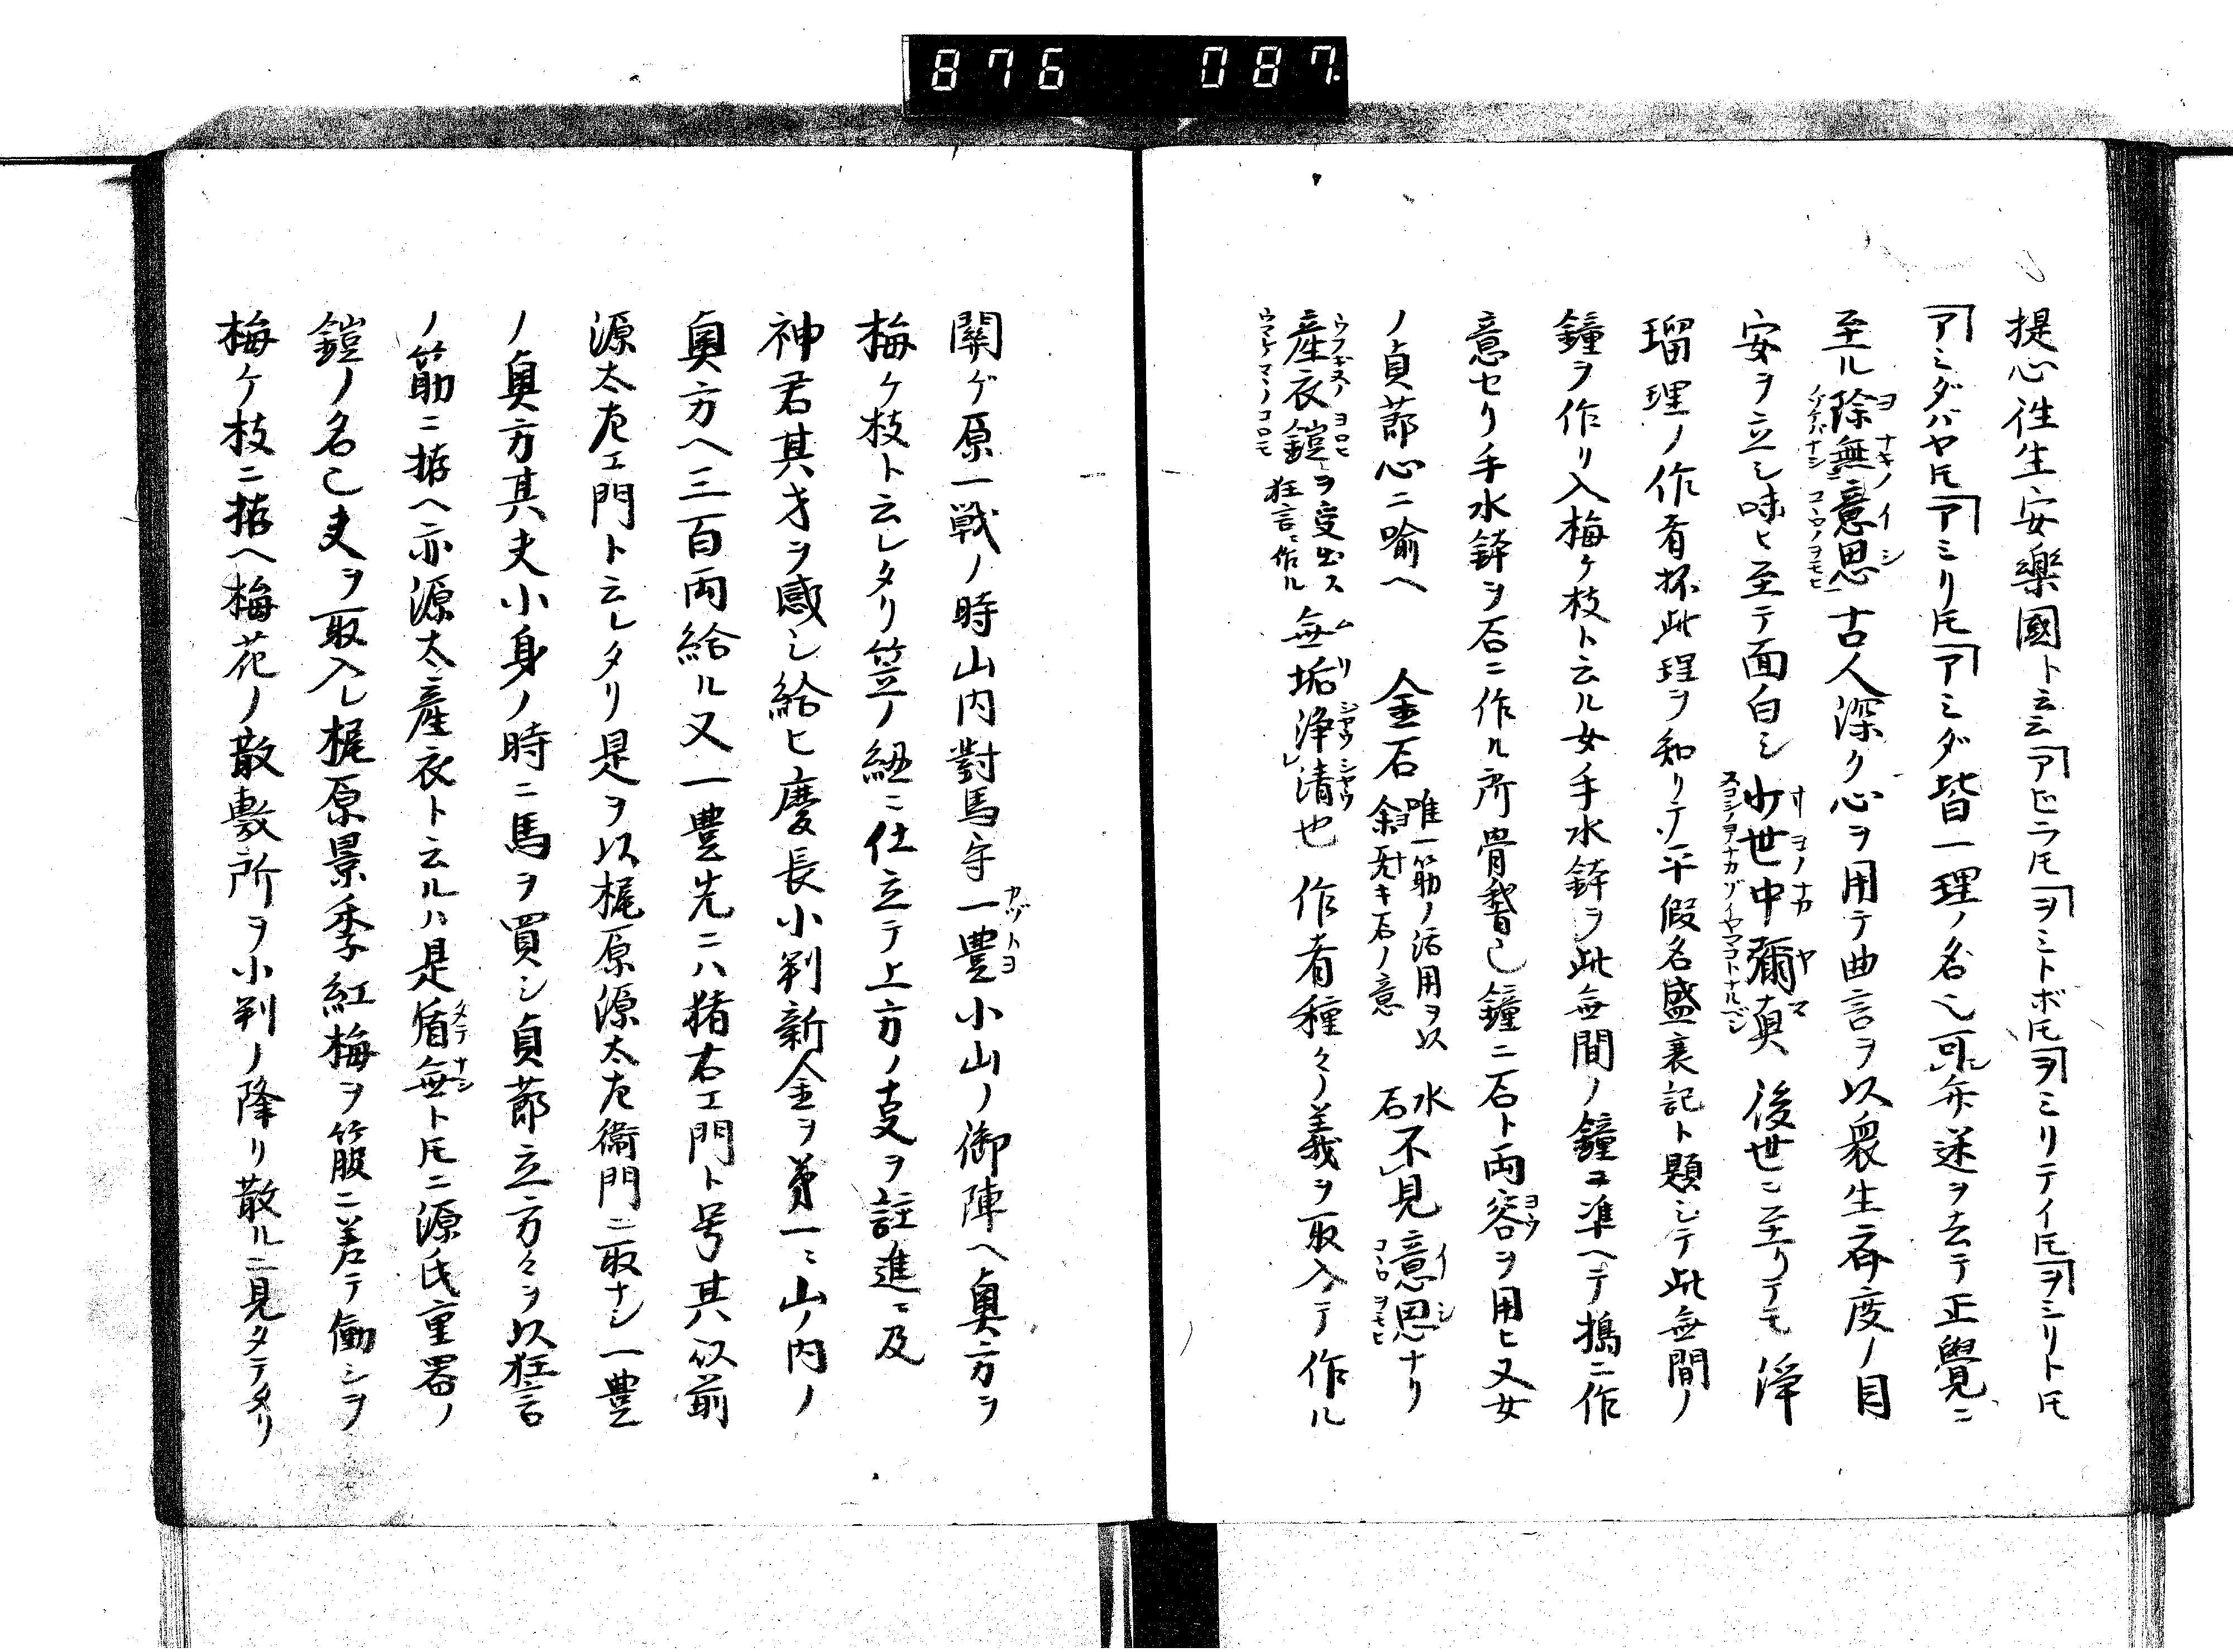 876 087
提心往生安樂國ト云云アビラ𪜈ヲミトボ𪜈ヲミリテイ𪜈ヲミリト𪜈
アミダバヤ𪜈アミリ𪜈アミダ皆一理ノ名也可レ弁迷ヲ去テ正覺ニ
至ル除無意思古人深ク心ヲ用テ曲言ヲ以衆生済度ノ目
安ヲ立シ味ヒ至テ面白シ少世中彌眞後世ニ至リテモ淨
瑠理ノ作者抔此理ヲ知リテノ平假名盛衰記ト題シテ此無間ノ
鐘ヲ作リ入梅ケ枝ト云ル女手水鉢ヲ此無間ノ鐘ヨ準ヘテ搗ニ作
意セリ手水鉢ヲ石ニ作ル所骨髄也鐘ニ石ト両容ヲ用ヒ又女
ノ貞節心ニ喻ヘ 金石 唯一筋ノ活用ヲ以 余咒キ石ノ意 水石不レ見意思ナリ
産衣鎧ヲ受出ス 狂言ニ作ル 無垢淨レ清也 作者種々ノ義ヲ取入テ作ル
關ゲ原一戦ノ時山内對馬守一豊小山ノ御陣ヘ奥方ヲ
梅ケ枝ト云レタリ笠ノ紐ニ仕立テ上方ノ支ヲ註進ニ及
神君其才ヲ感シ給ヒ慶長小判新金ヲ第一ニ山ノ内ノ
奥方ヘ三百両給ル又一豊先ニハ猪右エ門ト号其以前
源太左エ門ト云レタリ是ヲ以梶原源太左衞門ニ取ナシ一豊
ノ奥方其夫小身ノ時ニ馬ヲ買シ貞節立方々ヲ以狂言
ノ筋ニ拵ヘ亦源太産衣ト云ルハ是盾無ト𪜈ニ源氏重器ノ
鎧ノ名也夫ヲ取入レ梶原景季紅梅ヲ箙ニ差テ働シヲ
梅ケ枝ニ拵ヘ梅花ノ散敷所ヲ小判ノ降リ散ルニ見タテタリ